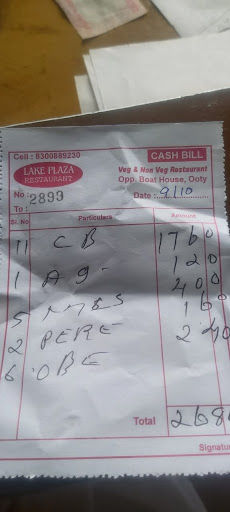 Cell : 8300889230 CASH BILL
LAKE PLAZA
RESTAURANT
Veg & Non Veg Restaurant
Opp. Boat House, Ooty
No : 2899 Date : 9/10
To :
Sl. No Particulars Amount
11 CB 1760
1 120
5 400
2 PERE 160
6 OBE 240
Total 268
Signatu